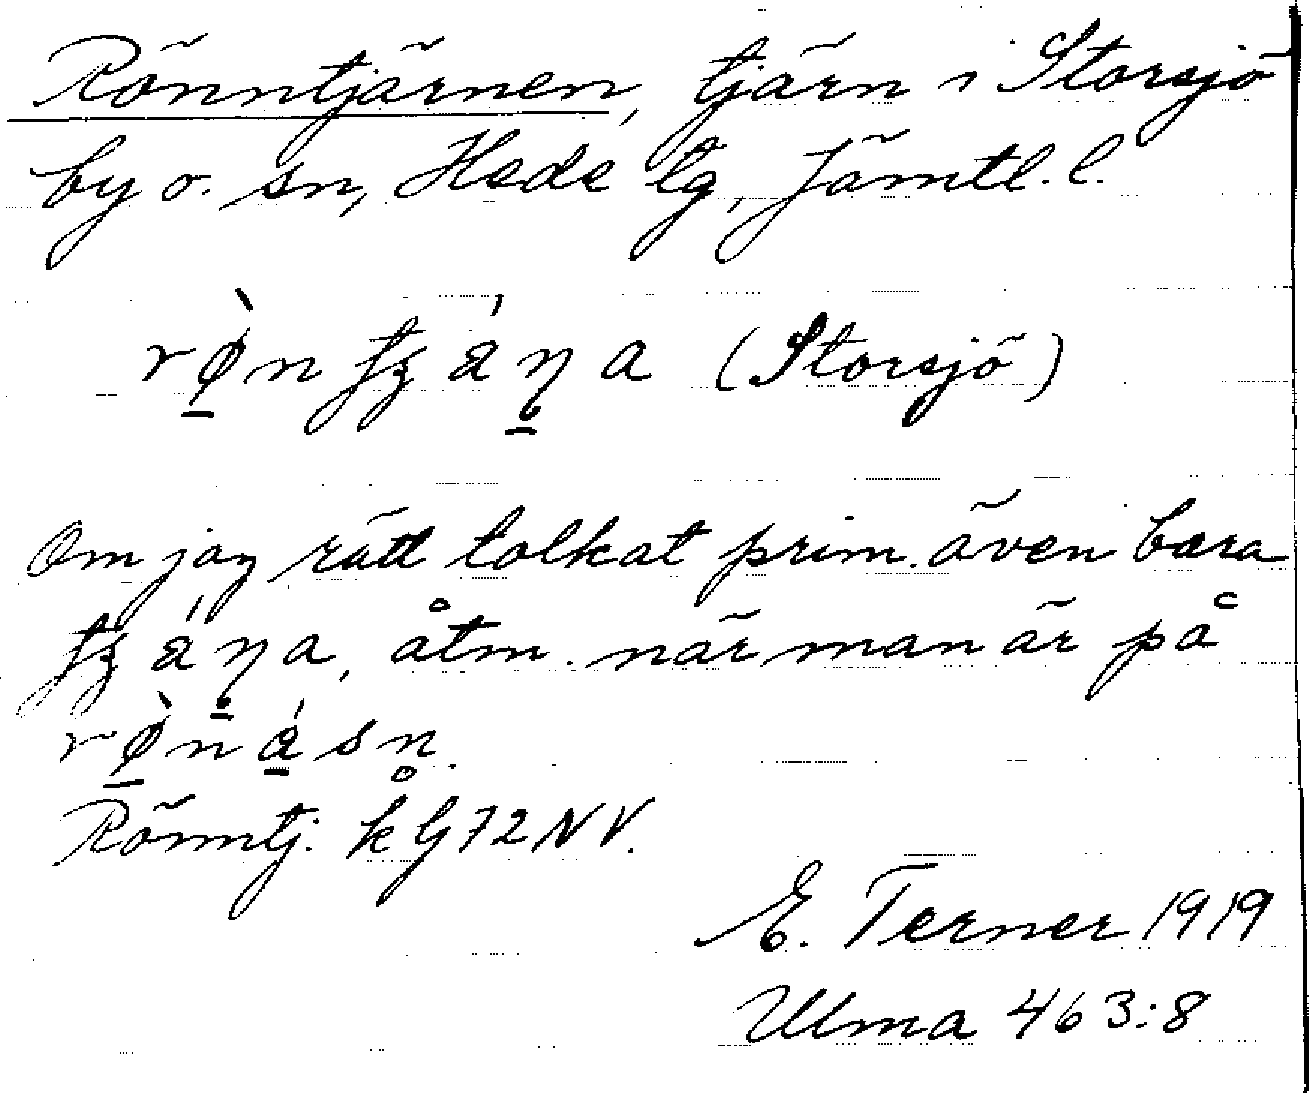 Rönntjärnen, tjärn i Storsjö
by o. sn, Hede tg, Jämtl. l.
(Storsjö)
Om jag rätt tolkat prim. även bara
åtm. när man är på
Rönntj. k G72NV.
E. Terner 1919
Ulma 463:8